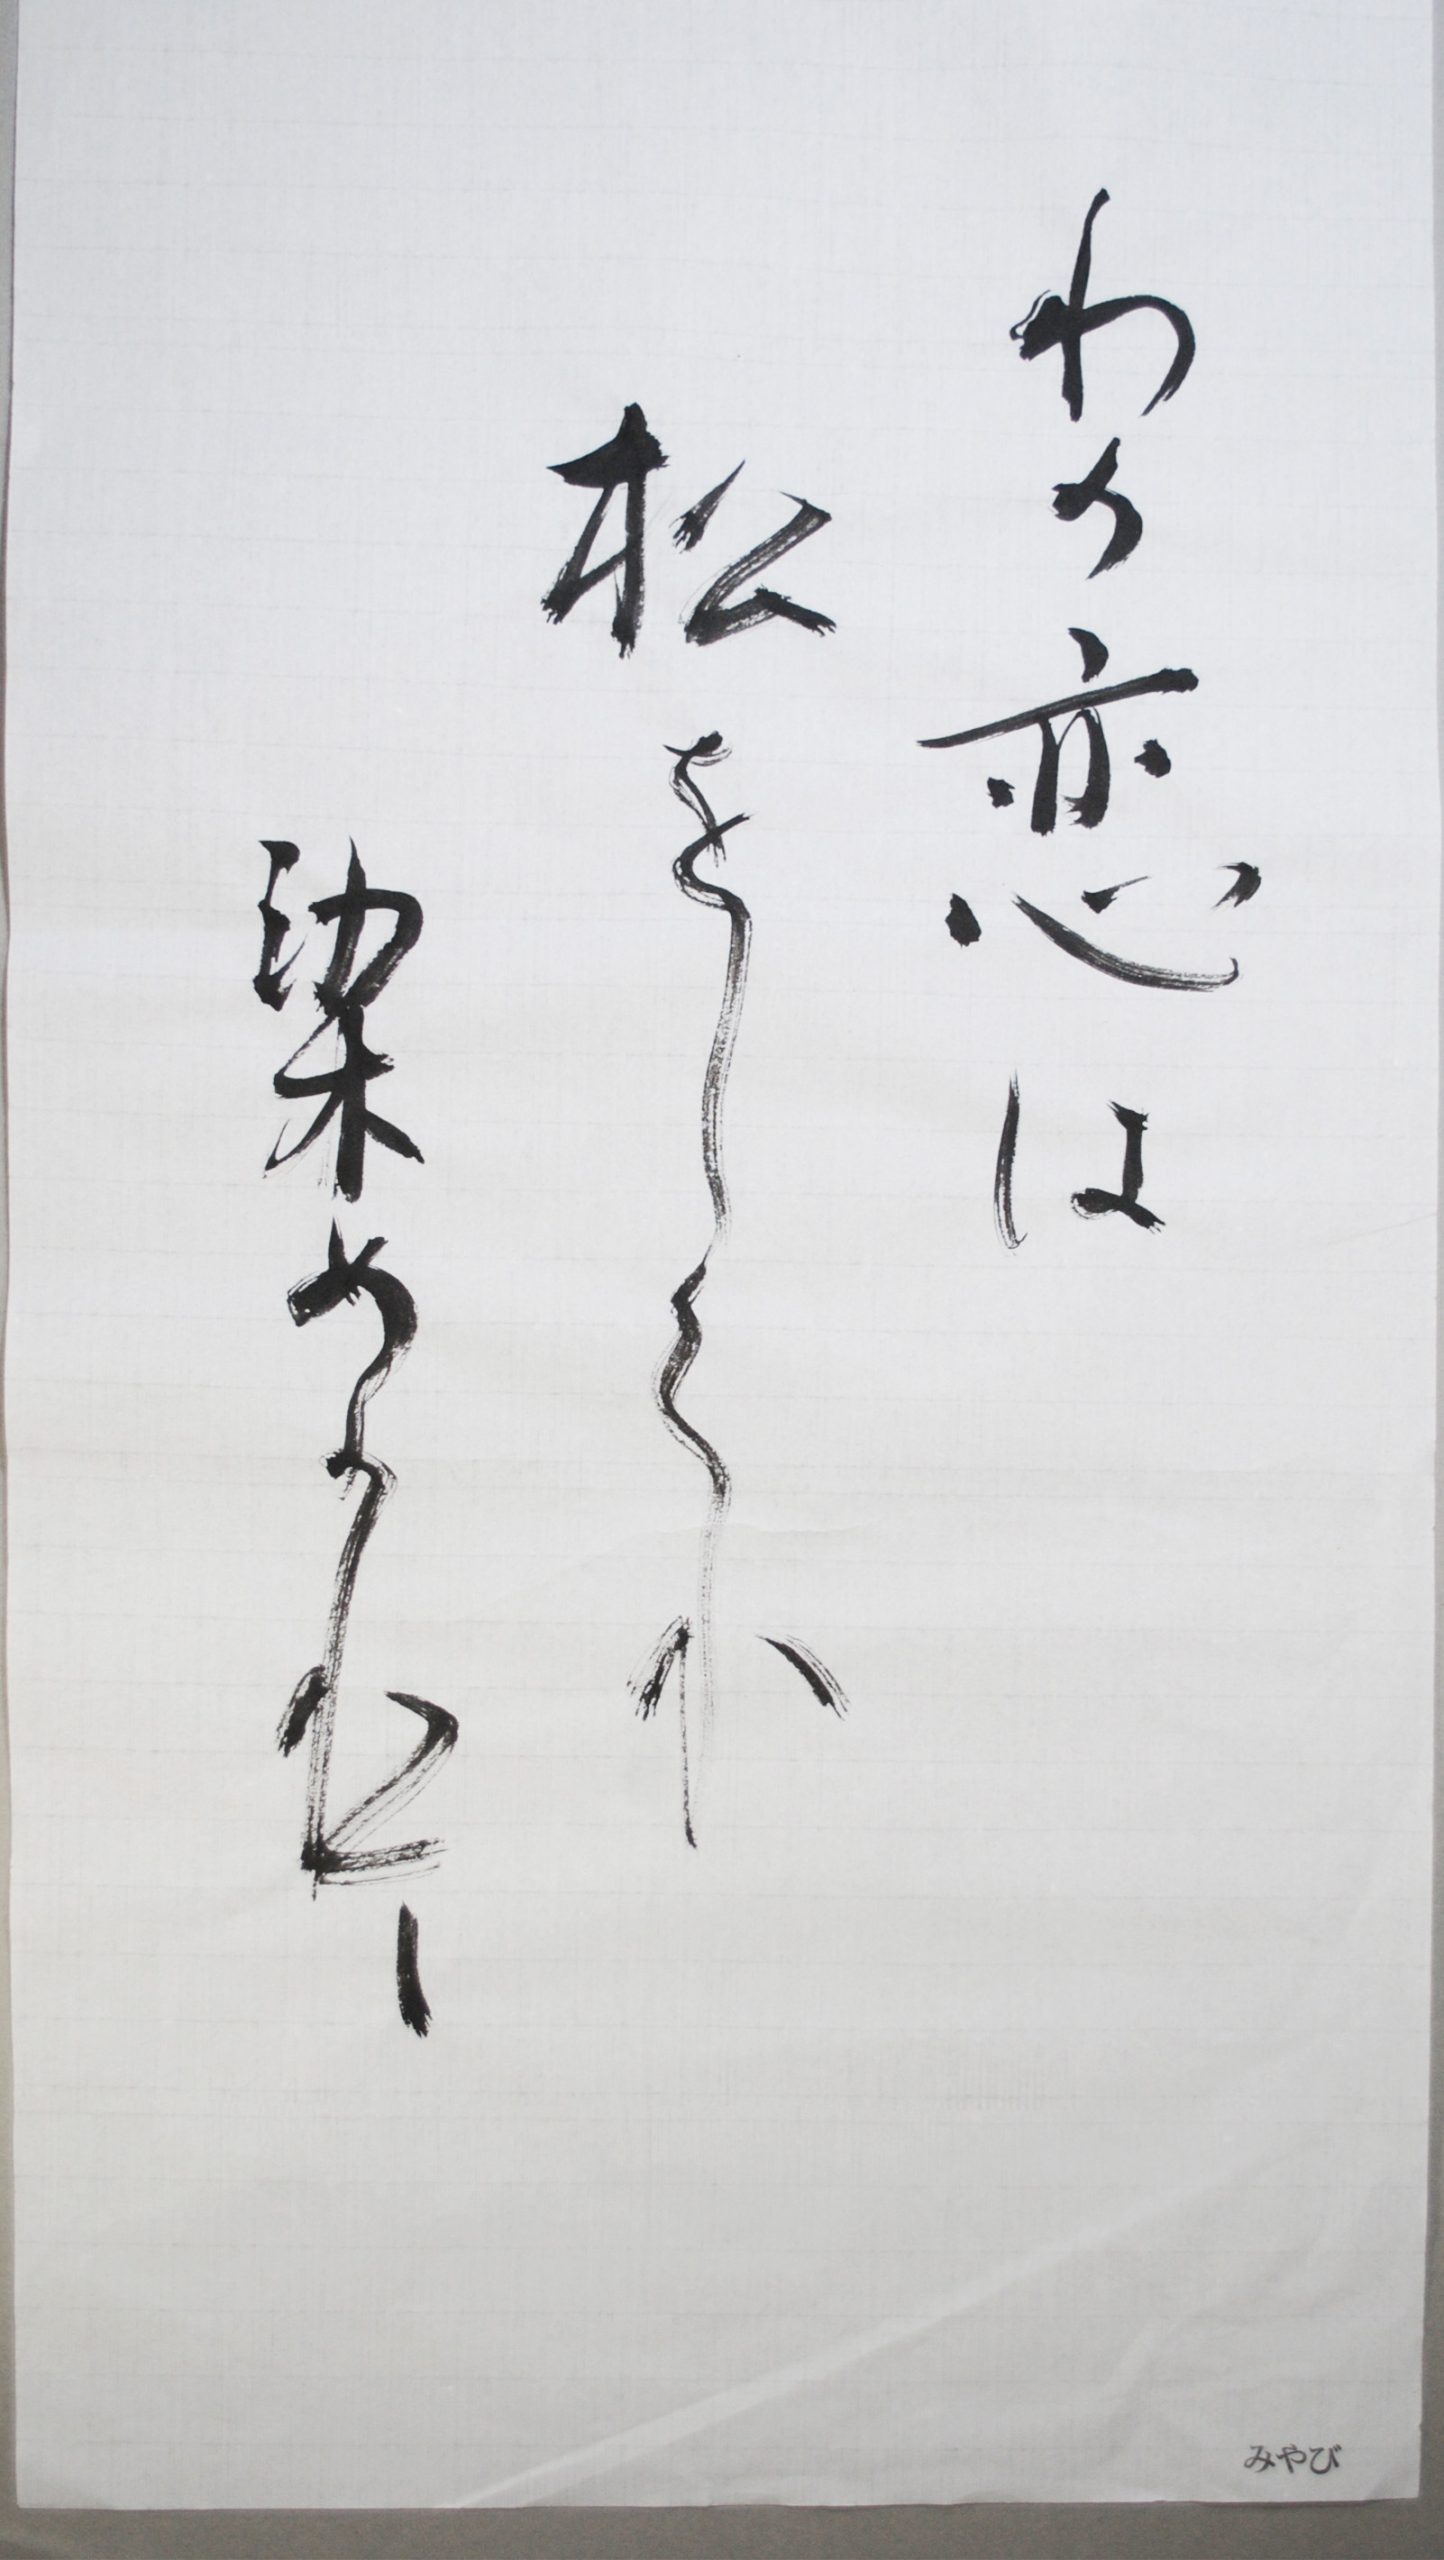 わか恋は
松をしくれの
染めかねて
みやび